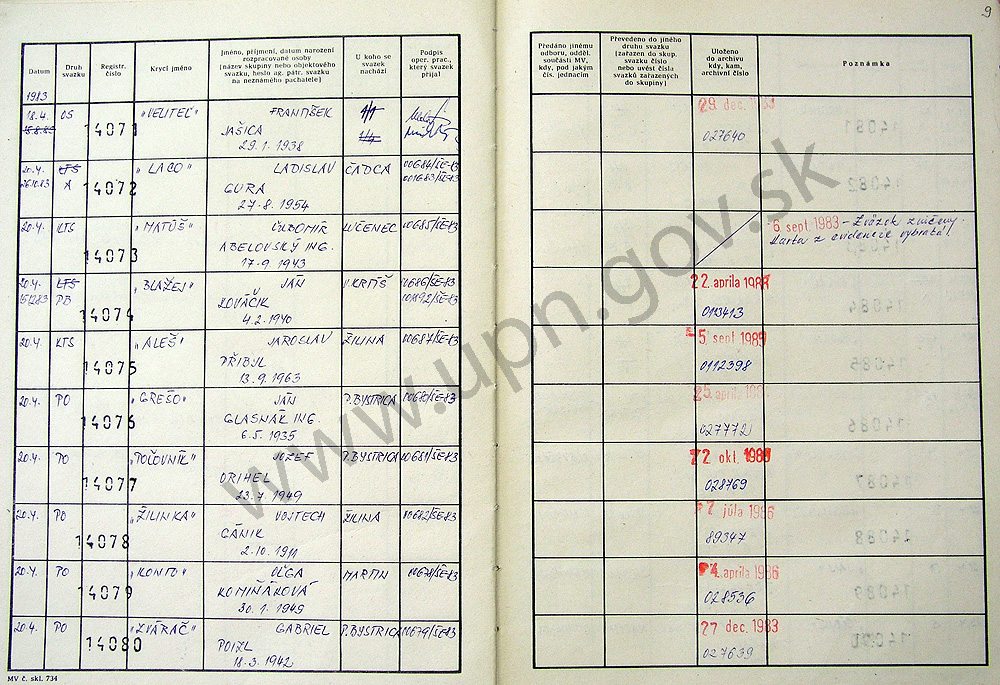 9
Datum
Druh svazku
Registr. číslo
Krycí jméno
Jméno, příjmení, datum narození rozpracované osoby (název skupiny nebo objektového svazku, heslo ag. pátr. svazku na neznámého pachatele)
U koho se svazek nachází
Podpis oper. prac., který svazek přijal
Předáno jinému odboru, odděl. součásti MV, kdy, pod jakým čís. jednacím
Převedeno do jiného druhu svazku (zařazen do skup. svazku číslo nebo uvést čísla svazků zařazených do skupiny)
Uloženo do archivu kdy, kam, archivní číslo
Poznámka
1983
18.4. OS 14071 "VELITEĽ" FRANTIŠEK
JAŠICA
29.1.1938
29. dec. 1983
027640
20.4. KTS "LACO" LADISLAV ČADCA 00684/ŠE-83
26.10.83 A 14072 GURA 001683/ŠE-83
27.8.1954
20.4. KTS "MATÚŠ" ĽUBOMÍR LUČENEC 00685/ŠE-83
14073 ABELOVSKÝ ING.
17.9.1943
6. sept. 1983 - Zväzok zničený.
Karta z evidencie vybratá!
20.4. KTS "BLAŽEJ" JÁN V.KRTÍŠ 00686/ŠE-83
PO 14074 KOVÁČIK
4.2.1940
22. apríla 1988
20.4. KTS 14075 "ALEŠ" JAROSLAV ŽILINA 00687/ŠE-83
PŘIBYL
13.9.1963
5. sept 1989
0112398
20.4. PO 14076 "GREŠO" JÁN P.BYSTRICA 00680/ŠE-83
GLASNÁK ING.
6.5.1935
25. apríla
027772
20.4. PO 14077 "POĽOVNÍK" JOZEF P.BYSTRICA 00681/ŠE-83
ORIHEL
23.7.1949
okt.
028769
20.4. PO 14078 "ŽILINKA" VOJTECH ŽILINA 00682/ŠE-83
CÁNIK
2.10.1911
júla 1986
89347
20.4. PO 14079 "KONTO" OĽGA MARTIN
KOMIŇÁKOVÁ
30.1.1949
apríla 1986
028536
20.4. PO 14080 "ZVÁRAČ" GABRIEL P.BYSTRICA 00679/ŠE-83
POIZL
18.3.1942
27 dec. 1983
027639
MV č. skl. 734
www.upn.gov.sk